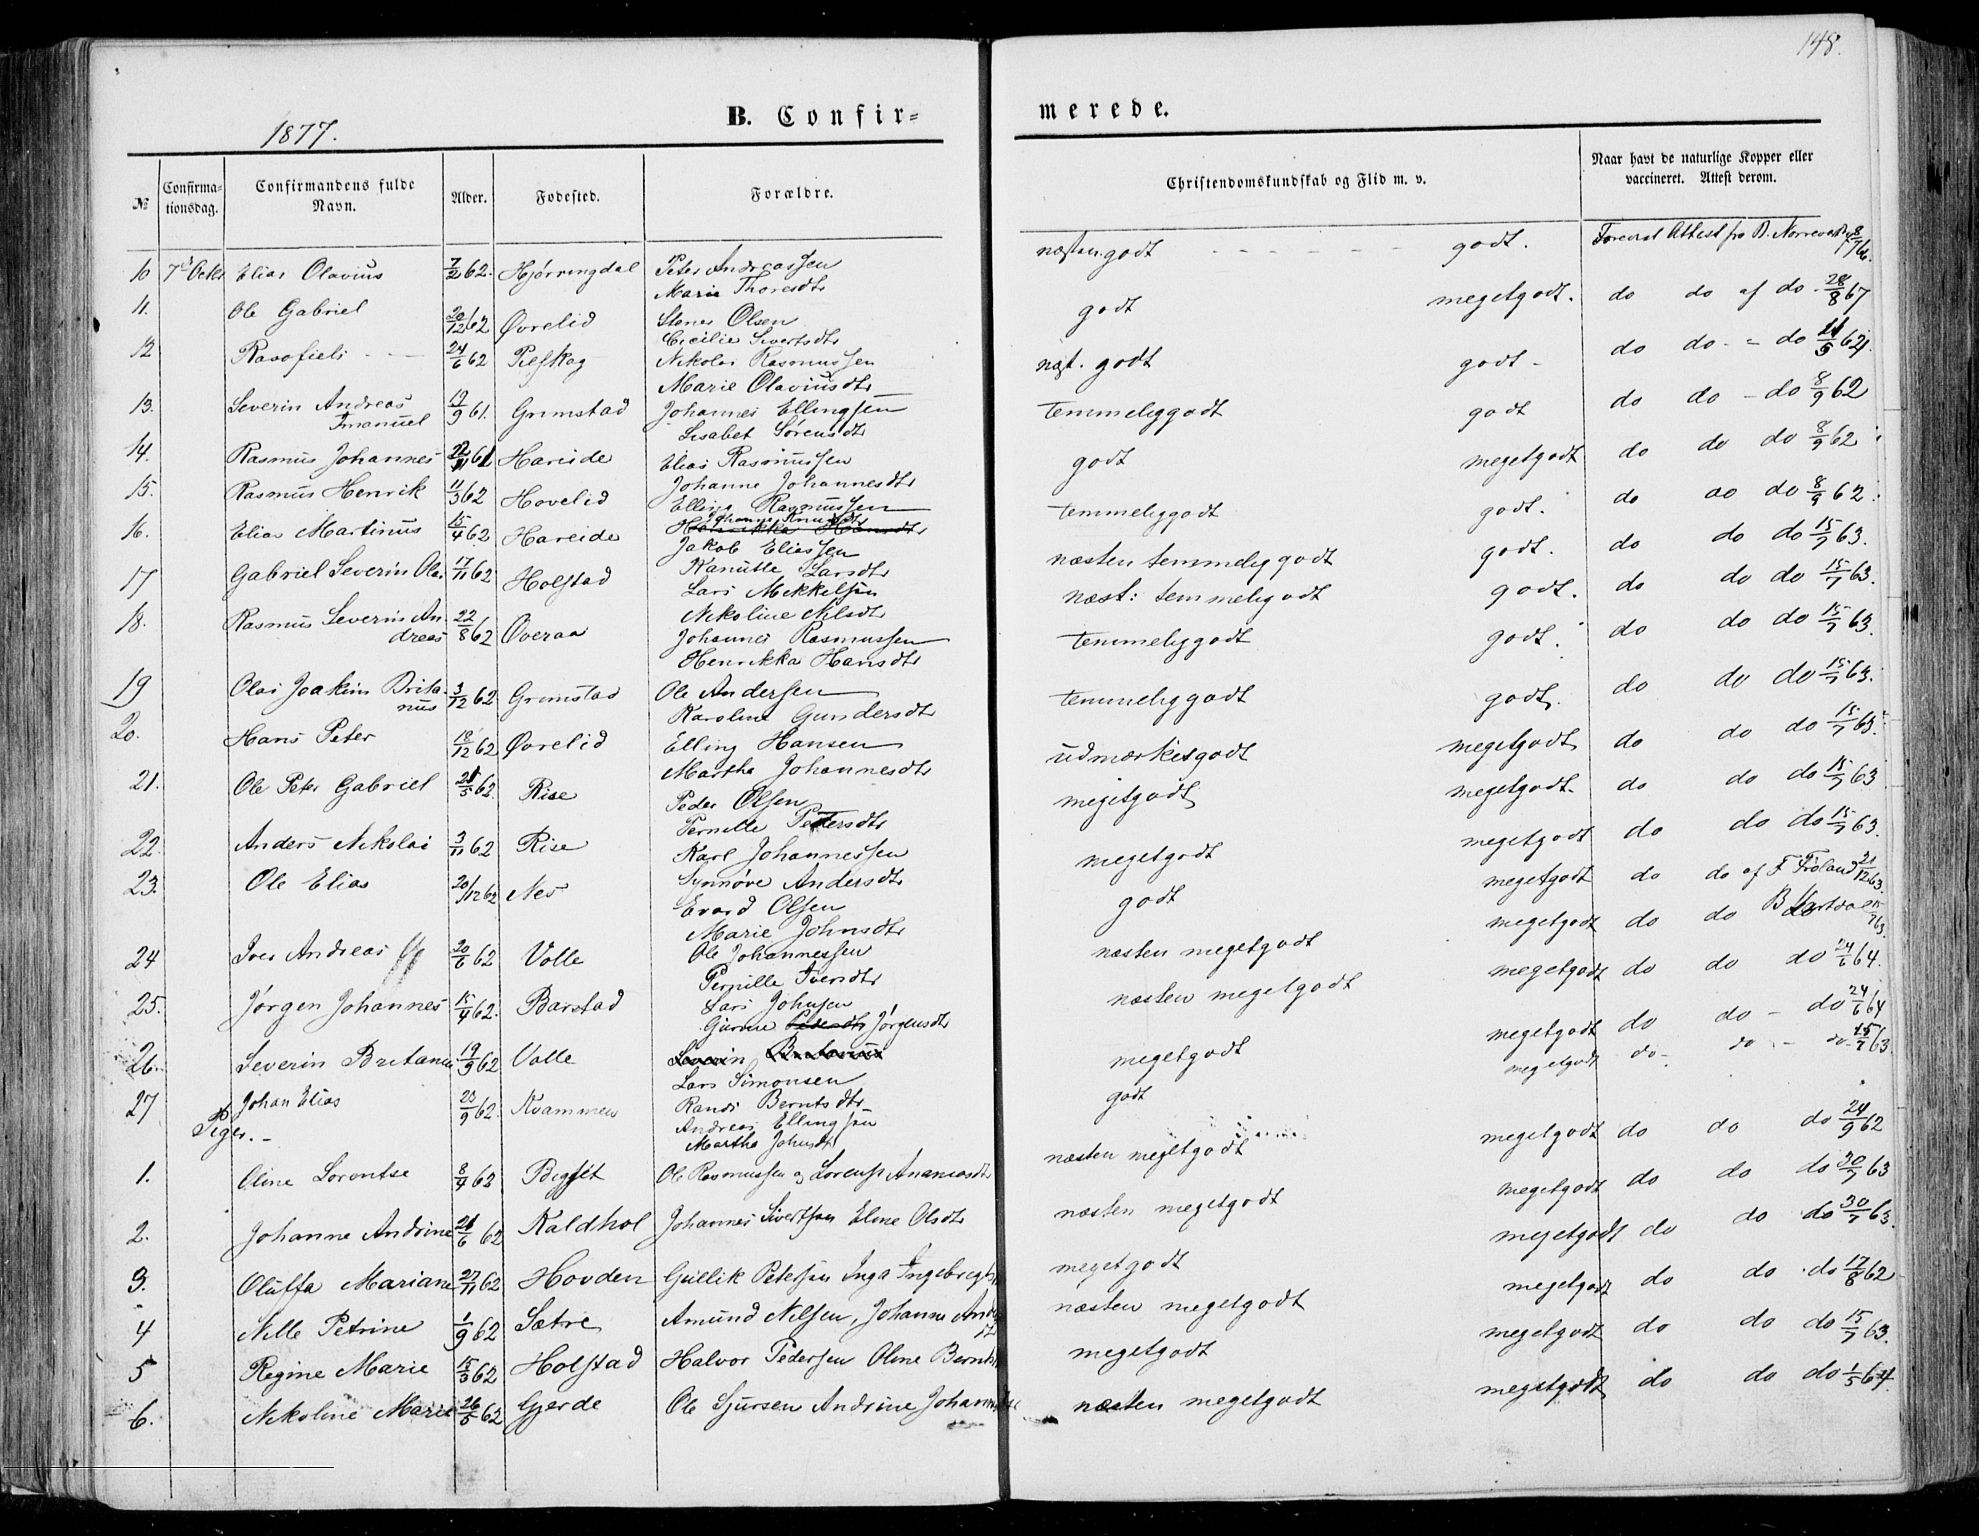 148.
B. Confir=
merede.
1877.
№ Confirma-tionsdag. Confirmandens fulde Navn. Alder. Fødested. Forældre. Christendomskundskab og Flid m. v. Naar havt de naturlige Kopper eller vaccineret. Attest derom.
10 7de Octb Elias Olavius 7/2 62. Hjørringdal Peter Andreassen næsten godt godt. Forevist Attest fra
Marie Thoresdtr
11. Ole Gabriel 20/12 62 Øvrelid Olsen godt megetgodt. do do af do 28/8 67
Cecilie Sivertsdtr
12 24/6 62 Nikolai Rasmussen næst. godt godt - do do - do
Marie Olaviusdtr
13. Severin Andreas 19/9 61. Grimstad Johannes Ellingsen temmeliggodt godt do do - do 8/9 62
Imanuel Lisabet Sørensdtr
14. Rasmus Johannes 22/11 61 Hareide Elias Rasmussen godt megetgodt do do do 8/9 62
Johanne Johannesdtr
15. Rasmus Henrik 11/3 62 Hovelid Elling Rasmussen temmeliggodt godt. do do do 8/9 62.
16. Elias Martinus 15/4 62 Hareide Jakob Eliassen næsten temmeliggodt godt. do do do 15/7 63.
Larsdtr
17 Gabriel Severin Olai 17/11 62 Holstad Lars Mikkelsen næst: temmeligodt godt. do do do 15/7 63.
Nikoline Nilsdtr
18. Rasmus Severin An- 22/8 62 Overaa Johannes Rasmussen temmeliggodt godt. do do do 15/7 63.
dreas Henrikka Hansdtr
19 Olai Joakim Brita- 3/12 62 Grimstad Ole Andersen temmeliggodt godt. do do do 15/7 63.
nus Karoline Gundersdtr
20. Hans Peter 18/12 62 Øvrelid Elling Hansen udmærketgodt megetgodt do do do 15/7 63.
Martha Johannesdtr
21. Ole Peter Gabriel 21/5 62. Rise Peder Olsen megetgodt megetgodt- do do do 15/7 63
Pernille Pedersdtr
22. Anders Nikolai 3/11 62 Rise Karl Johannessen megetgodt megetgodt do do do 15/7 63.
Synnøve Andersdtr
23. Ole Elias 20/12 62 Nes Evard Olsen godt megetgodt do do af F Frøland 21/12 63.
Marie Johnsdtr
24 Iver Andreas 20/6 62 Volle Ole Johannessen næsten megetgodt megetgodt do do
Pernille Iversdtr
25. Jørgen Johannes 15/4 62. Barstad Lars Johnsen næsten megetgodt megetgodt do do do 24/6 64.
Gurine Jørgensdtr
26. Severin Britanus 19/9 62 Volle Lars Simonsen megetgodt megetgodt do do - do 24/6 64
Randi Berntsdtr
27 Johan Elias 23/9 62. Kvammen Andreas Ellingsen godt megetgodt do- do - do 15/7 63.
Martha Johnsdtr
Piger.-
1. Oline Lorentse 8/4 62 Ole Rasmussen og næsten megetgodt megetgodt do do do 24/9 62
2. Johanne Andrine 21/6 62 Kaldhol Johannes Sivertsen Eline Olsdtr næsten megetgodt megetgodt do do do 30/7 63
3. Oluffa Mariane 27/11 62 Hovden Gullik Petersen Inga megetgodt megetgodt do do do 30/7 63.
4 Nille Petrine 1/9 62 Sætre Amund Nilsen, Johanne næsten megetgodt megetgodt do do do 17/8 62
5 Regine Marie 15/5 62 Holstad Halvor Pedersen Oline megetgodt megetgodt do do do 15/7 63.
6. Nikoline Marie 26/5 62 Gjerde Ole Sjursen Andrine næsten megetgodt megetgodt do do do 1/5 64.